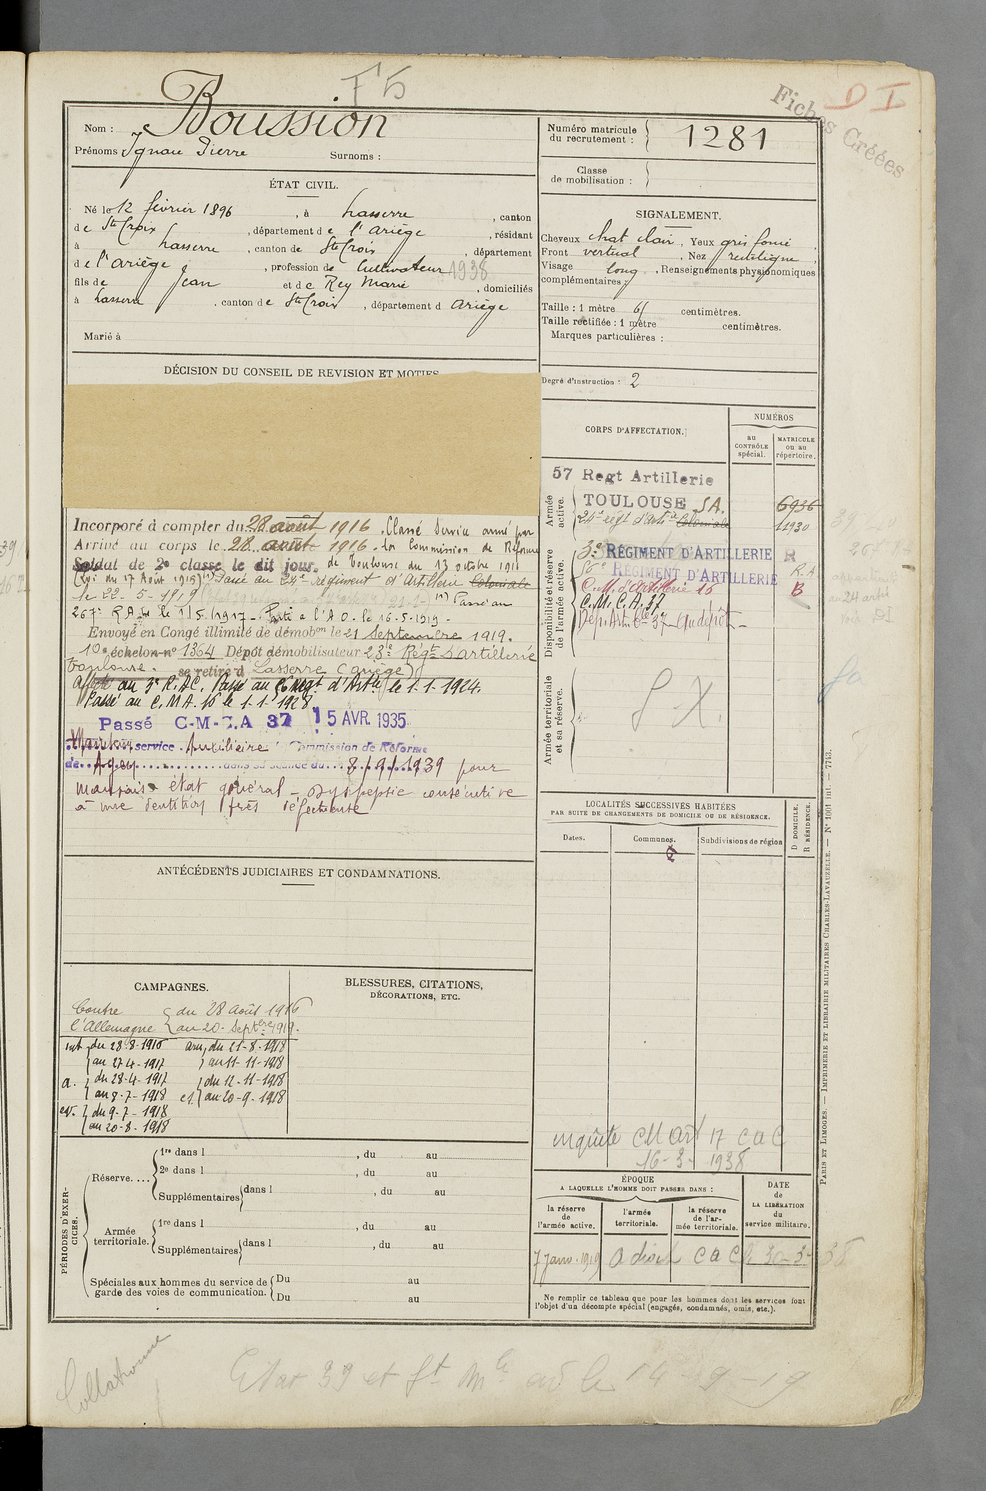 F5
D I
Fiches Créées
Nom : Boussion
Prénoms Ignace Pierre Surnoms :
Numéro matricule du recrutement : 1281
Classe de mobilisation :
ÉTAT CIVIL.
Né le 12 février 1896, à Lasserre, canton
de Ste Croix, département de l'Ariège, résidant
à Lasserre, canton de Ste Croix, département
de l'Ariège, profession de Cultivateur 1938
fils de Jean et de Rey Marie, domiciliés
à Lasserre, canton de Ste Croix, département d Ariège
Marié à
SIGNALEMENT.
Cheveux chat clair, Yeux gris foncé,
Front vertical, Nez rectiligne,
Visage long, Renseignements physionomiques
complémentaires :
Taille : 1 mètre 61 centimètres.
Taille rectifiée : 1 mètre centimètres.
Marques particulières :
Degré d'instruction : 2
DÉCISION DU CONSEIL DE REVISION ET MOTIFS
Incorporé à compter du 28 août 1916. Classé Service armé par
Arrivé au corps le 28 août 1916. la Commission de Réforme
Soldat de 2e classe le dit jour. de Toulouse du 13 octobre 1916
(Loi du 17 Août 1915) (1) Passé au 24e régiment d'Artillerie Coloniale
le 22-5-1919 (1) Passé au
267e R.A. le 1/5/1917. Parti à l'A.O. le 16-5-1919.
Envoyé en Congé illimité de démobon le 21 Septembre 1919.
10e échelon no 1364 Dépôt démobilisateur 23e Régt d'artillerie
Toulouse. se retire à Lasserre (Ariège)
Affecté au 3e R.A.C. Passé au 56 Regt d'Artie le 1.1.1924.
Passé au C.M.A. 16 le 1.1.1928
Passé C-M-A 37 15 AVR. 1935
Maintenu service Auxiliaire Commission de Réforme
de Agen dans sa séance du 8/9/1939 pour
mauvais état général - dyspepsie consécutive
à une dentition très défectueuse
CORPS D'AFFECTATION.
NUMÉROS
au CONTRÔLE spécial.
MATRICULE ou au répertoire.
Armée active.
57 Regt Artillerie
TOULOUSE SA. 6936
24e régt d'Artie Coloniale 11930
Disponibilité et réserve de l'armée active.
3e RÉGIMENT D'ARTILLERIE R
56e RÉGIMENT D'ARTILLERIE R.A.
C.M. d'Artillerie 16 B
C.M.C.A. 37
Dép. Art. Cle 37
Armée territoriale et sa réserve.
S. X.
LOCALITÉS SUCCESSIVES HABITÉES
PAR SUITE DE CHANGEMENTS DE DOMICILE OU DE RÉSIDENCE.
Dates. Communes. Subdivisions de région D DOMICILE. R RÉSIDENCE.
ANTÉCÉDENTS JUDICIAIRES ET CONDAMNATIONS.
CAMPAGNES.
Contre du 28 août 1916
l'Allemagne au 20 Septbre 1919.
int du 28-8-1916
au 27-4-1917
a. du 28-4-1917
au 8-7-1918
ev. du 9-7-1918
au 20-8-1918
arm du 21-8-1918
au 11-11-1918
du 12-11-1918
au 20-9-1918
BLESSURES, CITATIONS,
DÉCORATIONS, ETC.
enquête CM Art 17 cac
16-3-1938
PÉRIODES D'EXERCICES.
Réserve....
1re dans l , du au
2e dans l , du au
Supplémentaires dans l , du au
Armée territoriale.
1re dans l , du au
Supplémentaires dans l , du au
Spéciales aux hommes du service de garde des voies de communication.
Du au
Du au
ÉPOQUE
A LAQUELLE L'HOMME DOIT PASSER DANS :
la réserve de l'armée active.
l'armée territoriale.
la réserve de l'armée territoriale.
DATE de LA LIBÉRATION du service militaire.
7 janv. 1919 cac le 30-3-38
Ne remplir ce tableau que pour les hommes dont les services font
l'objet d'un décompte spécial (engagés, condamnés, omis, etc.).
PARIS ET LIMOGES. — IMPRIMERIE ET LIBRAIRIE MILITAIRES CHARLES-LAVAUZELLE. — No 1001 int. — 7743.
Collationné
Etat 39 et le 14-9-19